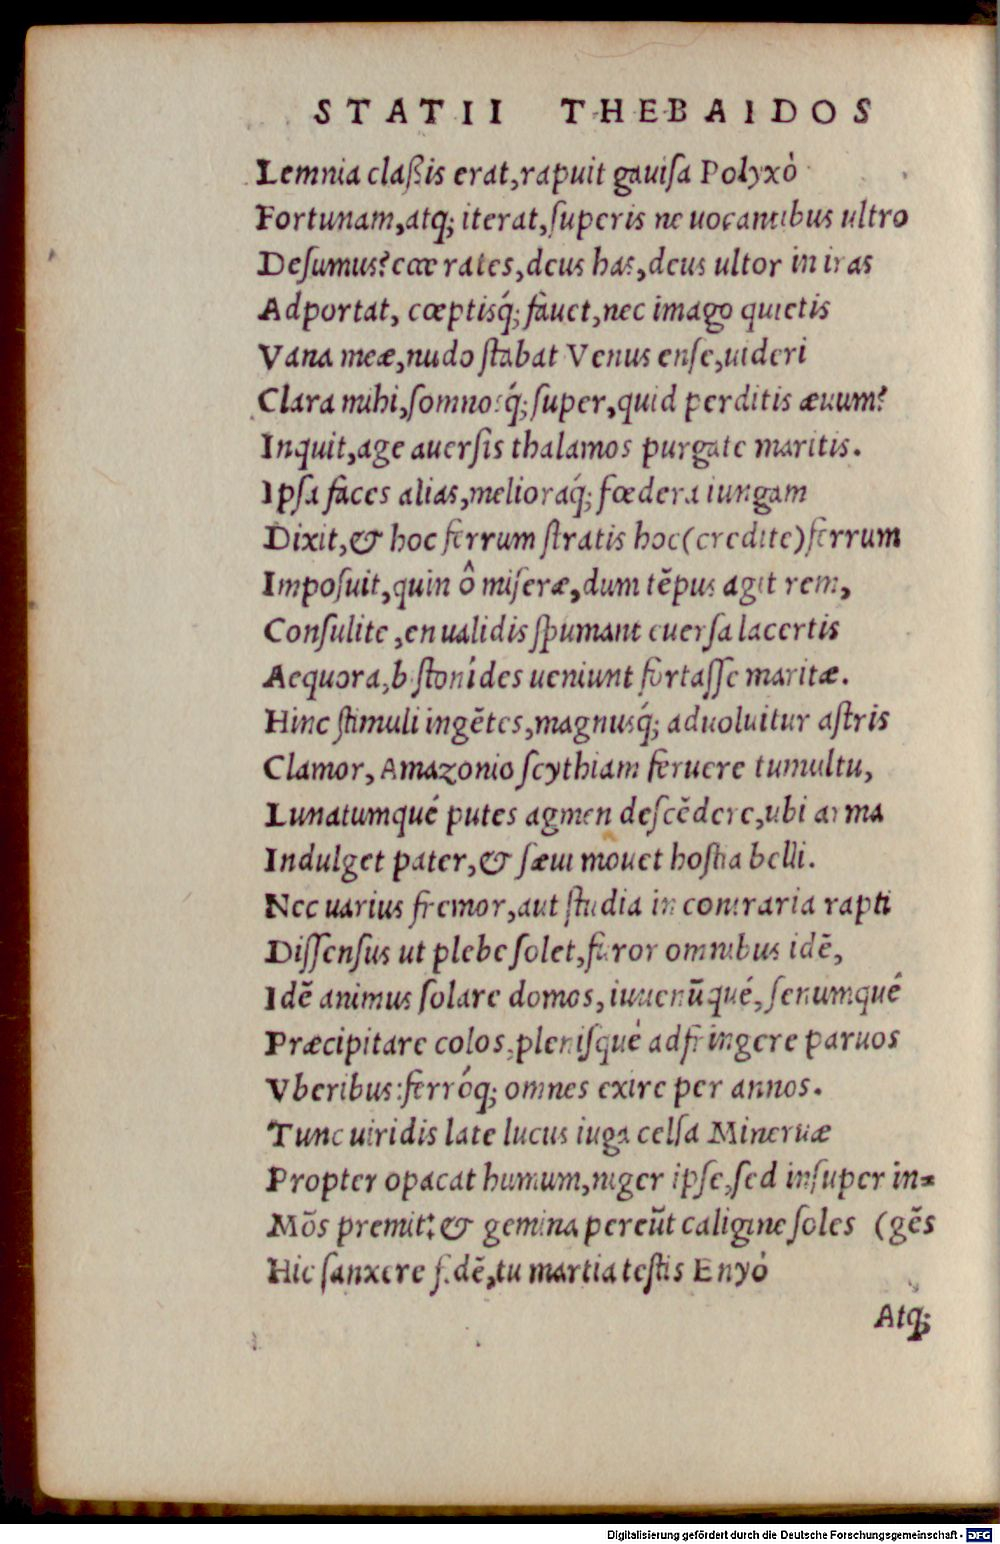 STATII THEBAIDOS
Lemnia claßis erat, rapuit gauisa Polyxò
Fortunam, atq; iterat, superis ne uocantibus ultro
Desumus? eccæ rates, deus has, deus ultor in iras
Adportat, cœptisq́; fauet, nec imago quietis
Vana meæ, nudo stabat Venus ense, uideri
Clara mihi, somnosq́; super, quid perditis æuum?
Inquit, age auersis thalamos purgate maritis.
Ipsa faces alias, melioraq́; fœdera iungam
Dixit, & hoc ferrum stratis hoc (credite) ferrum
Imposuit, quin ô miseræ, dum tẽpus agit rem,
Consulite, en ualidis spumant euersa lacertis
Aequora, b stonídes ueniunt fortasse maritæ.
Hinc stimuli ingẽtes, magnusq́; aduoluitur astris
Clamor, Amazonio scythiam feruere tumultu,
Lunatumqué putes agmen descẽdere, ubi arma
Indulget pater, & sæui mouet hostia belli.
Nec uarius fremor, aut studia in contraria rapti
Dissensus ut plebe solet, furor omnibus idẽ,
Idẽ animus solare domos, iuuenũqué, senumqué
Præcipitare colos, plenisqué adfringere paruos
Vberibus: ferróq; omnes exire per annos.
Tunc uiridis late lucus iuga celsa Mineruæ
Propter opacat humum, niger ipse, sed insuper in-
Mõs premit: & gemina pereũt caligine soles (gẽs
Hic sanxere fidẽ, tu martia testis Enyò
Atq;